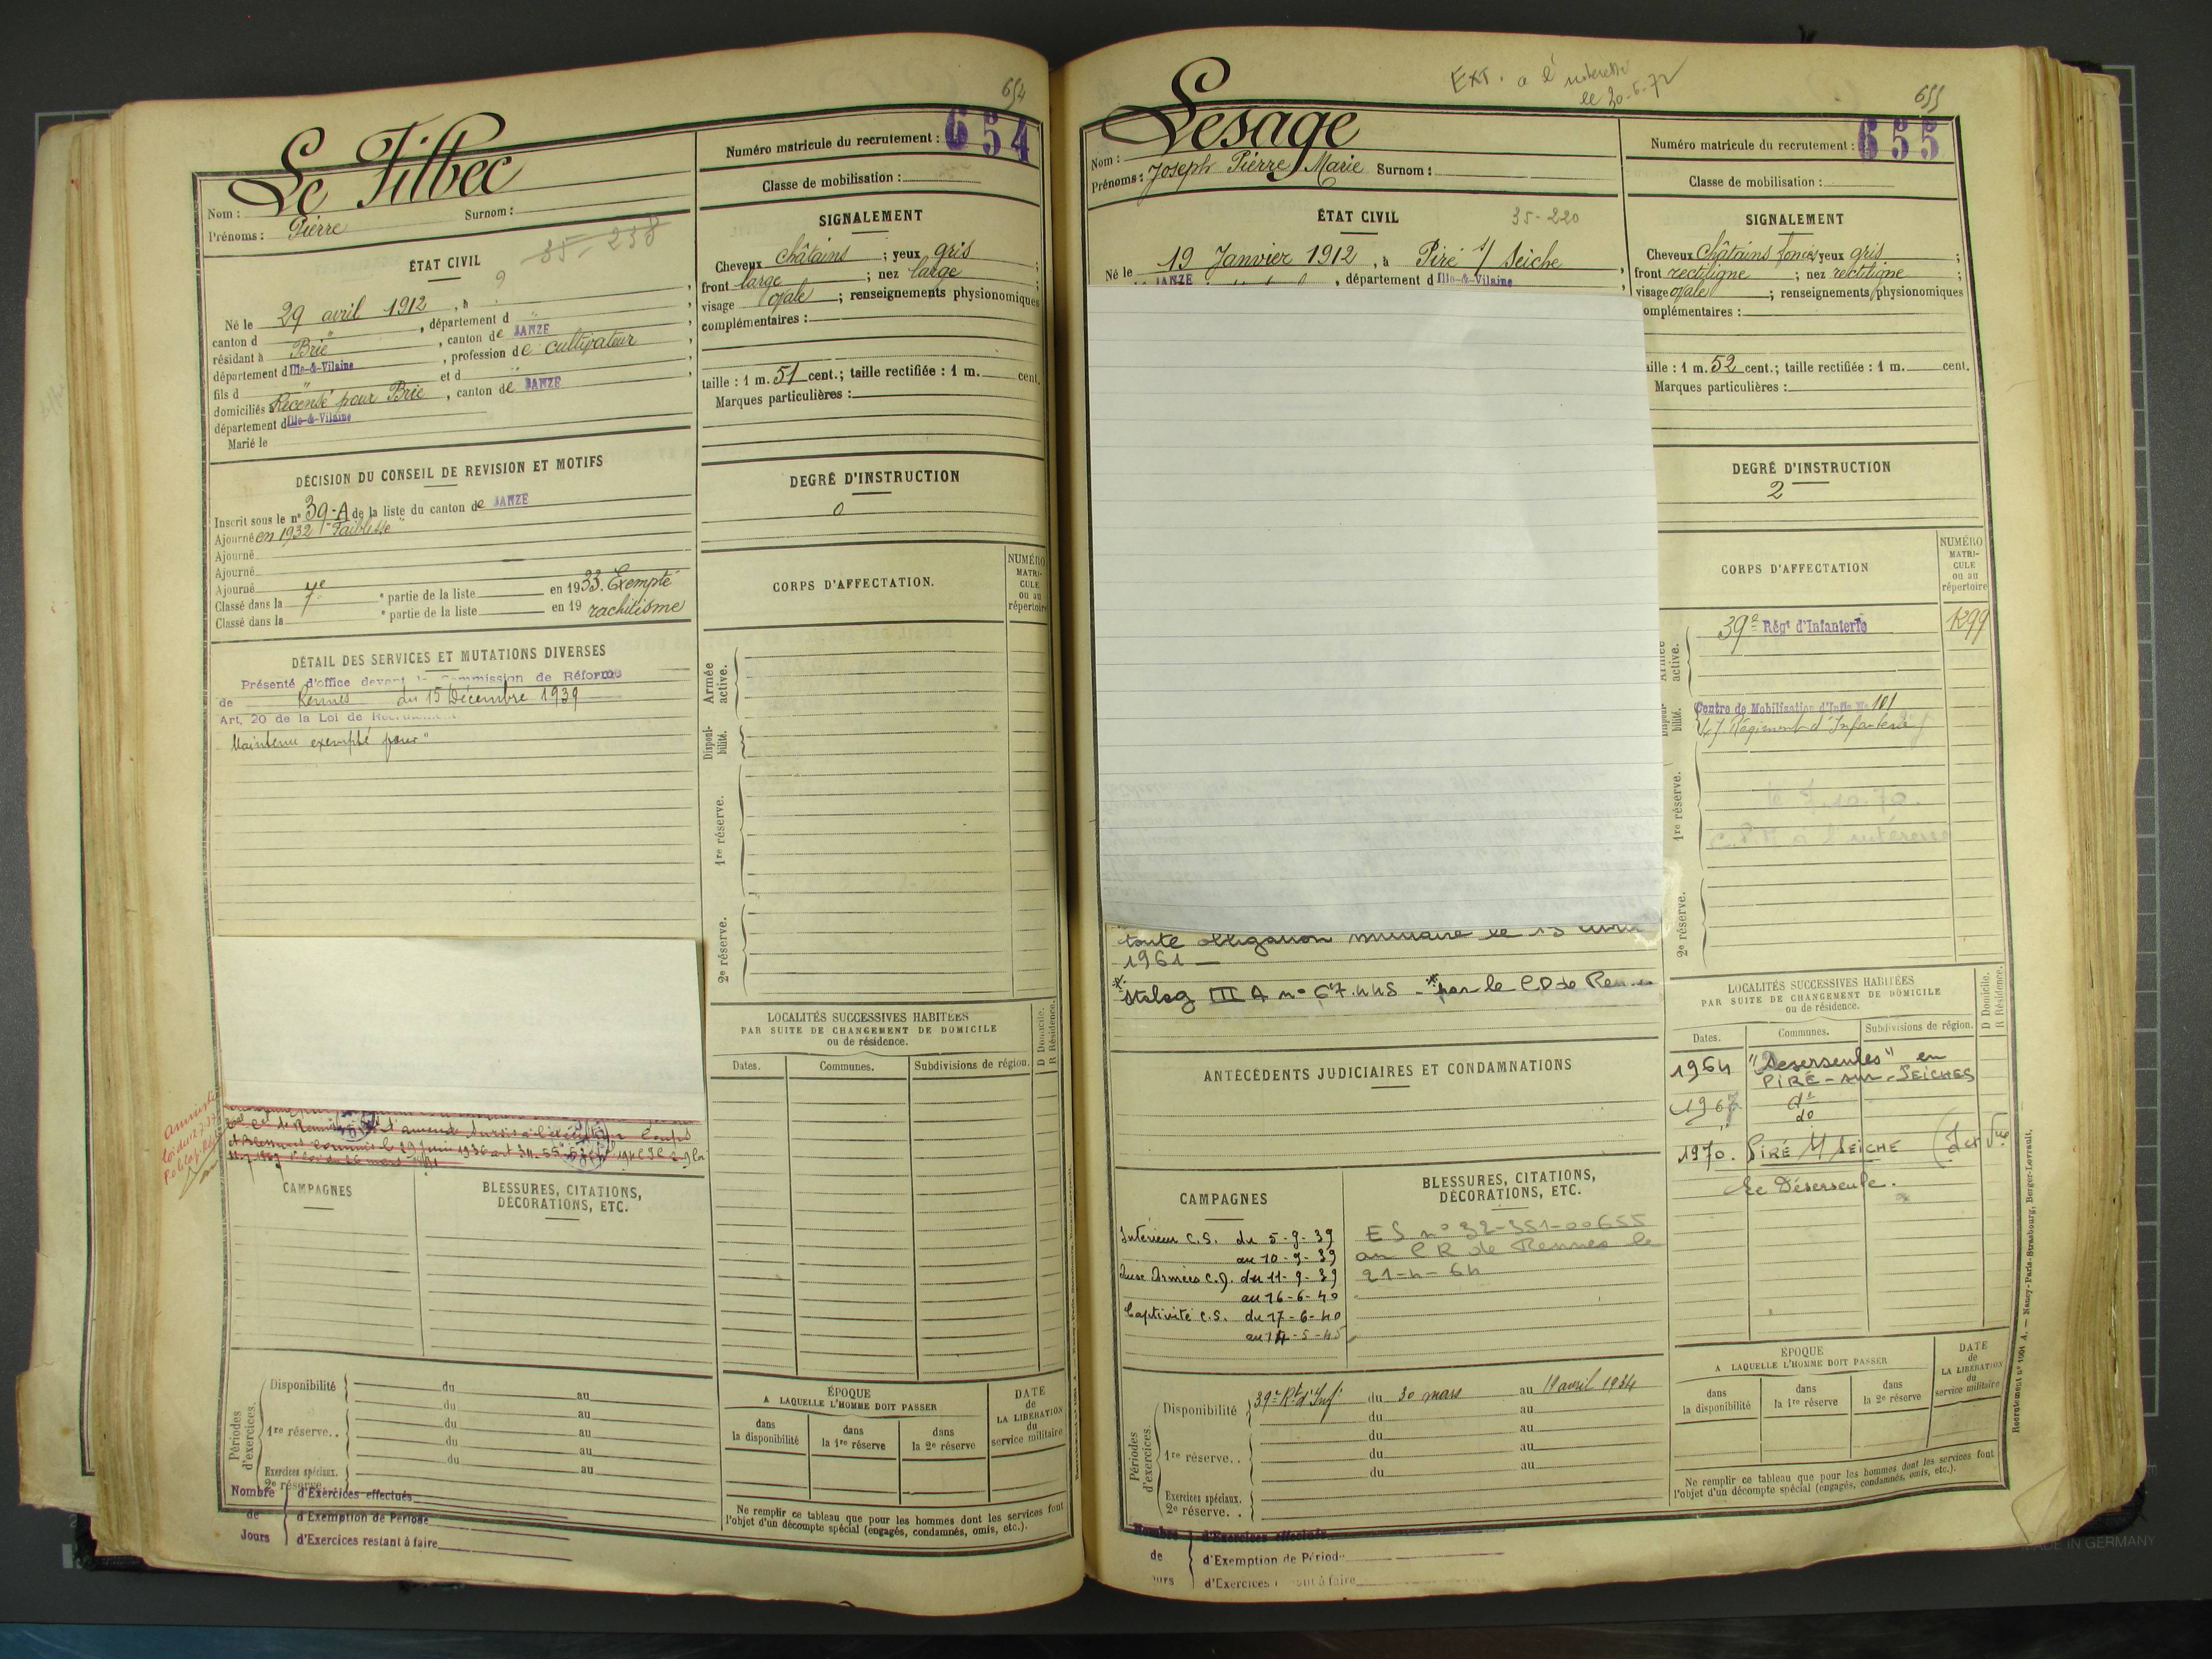 654
Le Tilbec
Nom :
Prénoms : Pierre
Surnom :
Numéro matricule du recrutement : 654
Classe de mobilisation :
ÉTAT CIVIL
35-238
Né le 29 avril 1912, à
canton d " , département d "
résidant à Brie , canton de JANZE
département d Ille-&-Vilaine , profession de cultivateur
fils d " et d "
domiciliés Recensé pour Brie , canton de JANZE
département d Ille-&-Vilaine
Marié le
SIGNALEMENT
Cheveux châtains ; yeux gris ;
front large ; nez large ;
visage ovale ; renseignements physionomiques
complémentaires :
taille : 1 m. 51 cent.; taille rectifiée : 1 m. cent.
Marques particulières :
DÉCISION DU CONSEIL DE REVISION ET MOTIFS
Inscrit sous le n° 39-A de la liste du canton de JANZE
Ajourné en 1932 "Faiblesse"
Ajourné
Ajourné
Ajourné
Classé dans la 7e e partie de la liste en 1933. Exempté
Classé dans la e partie de la liste en 19 rachitisme
DEGRÉ D'INSTRUCTION
0
DÉTAIL DES SERVICES ET MUTATIONS DIVERSES
Présenté d'office devant la Commission de Réforme
de Rennes du 15 Décembre 1939
Art. 20 de la Loi de Recrutement
Maintenu exempté pour "
CORPS D'AFFECTATION.
NUMÉRO
MATRI-
CULE
ou au
répertoire
Armée
active.
Disponi-
bilité.
1re réserve.
2e réserve.
LOCALITÉS SUCCESSIVES HABITÉES
PAR SUITE DE CHANGEMENT DE DOMICILE
ou de résidence.
D Domicile.
R Résidence.
Dates.
Communes.
Subdivisions de région.
CAMPAGNES
BLESSURES, CITATIONS,
DÉCORATIONS, ETC.
Périodes
d'exercices.
Disponibilité du au
du au
1re réserve.. du au
du au
du au
Exercices spéciaux.
2e réserve..
ÉPOQUE
A LAQUELLE L'HOMME DOIT PASSER
dans
la disponibilité
dans
la 1re réserve
dans
la 2e réserve
DATE
de
LA LIBÉRATION
du
service militaire
Ne remplir ce tableau que pour les hommes dont les services font
l'objet d'un décompte spécial (engagés, condamnés, omis, etc.).
Nombre d'Exercices effectués
de d'Exemption de Période
Jours d'Exercices restant à faire
EXT. a l'
le 30-6-72
655
Lesage
Nom :
Prénoms : Joseph Pierre Marie Surnom :
Numéro matricule du recrutement : 655
Classe de mobilisation :
ÉTAT CIVIL
35-220
Né le 19 Janvier 1912, à Piré s/ Seiche
JANZE , département d Ille-&-Vilaine
SIGNALEMENT
Cheveux châtains foncés yeux gris ;
front rectiligne ; nez rectiligne ;
visage ovale ; renseignements physionomiques
complémentaires :
taille : 1 m. 52 cent.; taille rectifiée : 1 m. cent.
Marques particulières :
DEGRÉ D'INSTRUCTION
2
CORPS D'AFFECTATION
NUMÉRO
MATRI-
CULE
ou au
répertoire
Armée
active.
39e Régt d'Infanterie
1299
Disponi-
bilité.
Centre de Mobilisation d'Infie No 101
47. Régiment d'Infanterie
1re réserve.
le 7.10.70.
2e réserve.
toute obligation militaire le 15 avril
1961
Stalag III A n° 67.448 - par le CD de Rennes
ANTÉCÉDENTS JUDICIAIRES ET CONDAMNATIONS
LOCALITÉS SUCCESSIVES HABITÉES
PAR SUITE DE CHANGEMENT DE DOMICILE
ou de résidence.
D Domicile.
R Résidence.
Dates.
Communes.
Subdivisions de région.
1964 "Deserseules" en
PIRÉ-sur-SEICHES
1967 do
do
1970. PIRÉ S/ SEICHE
Le Déserseule.
CAMPAGNES
Intérieur C.S. du 5-9-39
au 10-9-39
Aux Armées C.D. du 11-9-39
au 16-6-40
Captivité C.S. du 17-6-40
au 14-5-45
BLESSURES, CITATIONS,
DÉCORATIONS, ETC.
ES n° 32-351-00655
au CR de Rennes le
21-4-64
Périodes
d'exercices.
Disponibilité 39e Rt d'Inf du 30 mars au 19 avril 1934
du au
du au
1re réserve.. du au
du au
Exercices spéciaux.
2e réserve..
ÉPOQUE
A LAQUELLE L'HOMME DOIT PASSER
dans
la disponibilité
dans
la 1re réserve
dans
la 2e réserve
DATE
de
LA LIBÉRATION
du
service militaire
Ne remplir ce tableau que pour les hommes dont les services font
l'objet d'un décompte spécial (engagés, condamnés, omis, etc.).
Nombre d'Exercices effectués
de d'Exemption de Période
Jours d'Exercices restant à faire
Recrutement n° 1004 A. — Nancy-Paris-Strasbourg, Berger-Levrault.
MADE IN GERMANY